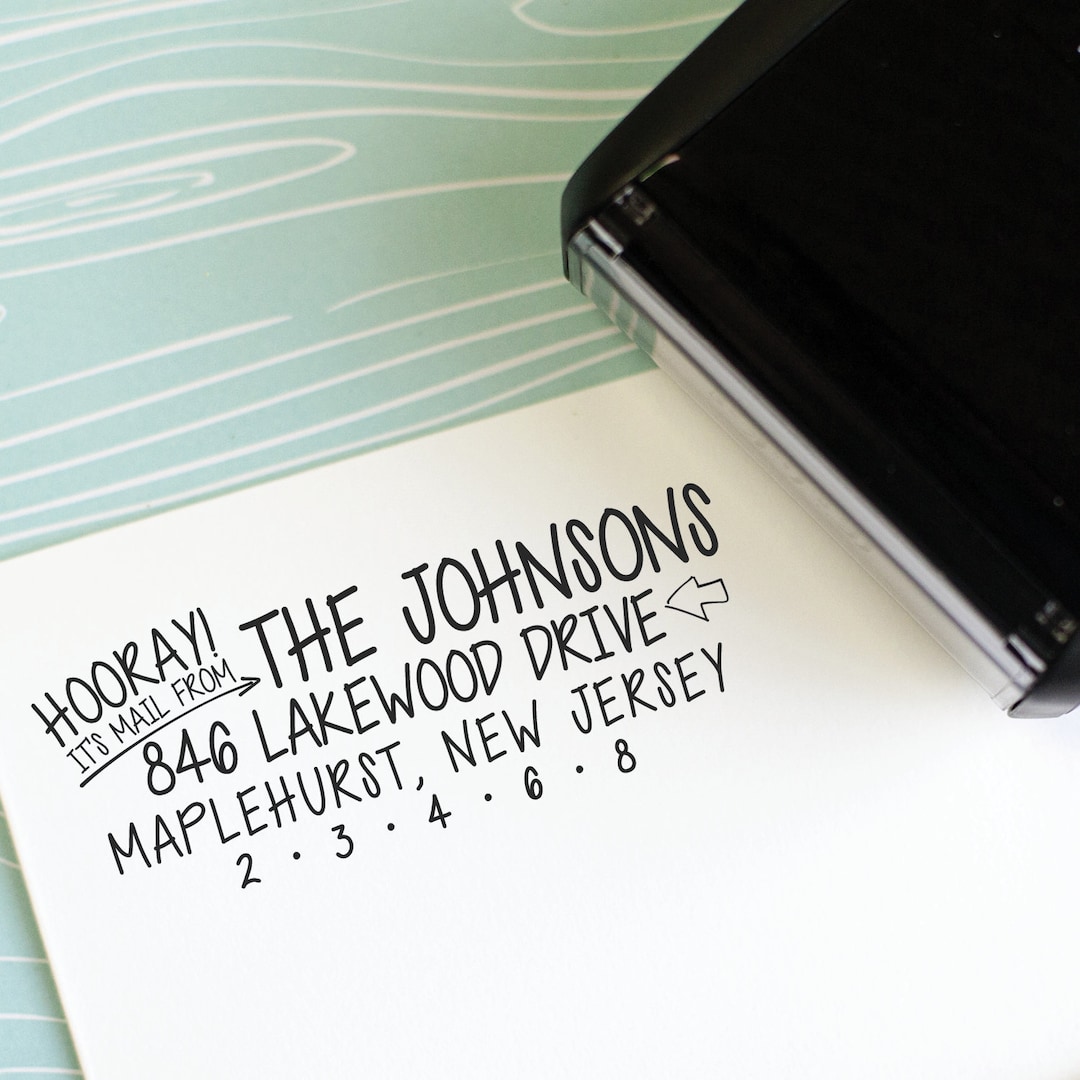 HOORAY!
IT'S MAIL FROM
THE JOHNSONS
846 LAKEWOOD DRIVE
MAPLEHURST, NEW JERSEY
2 · 3 · 4 · 6 · 8